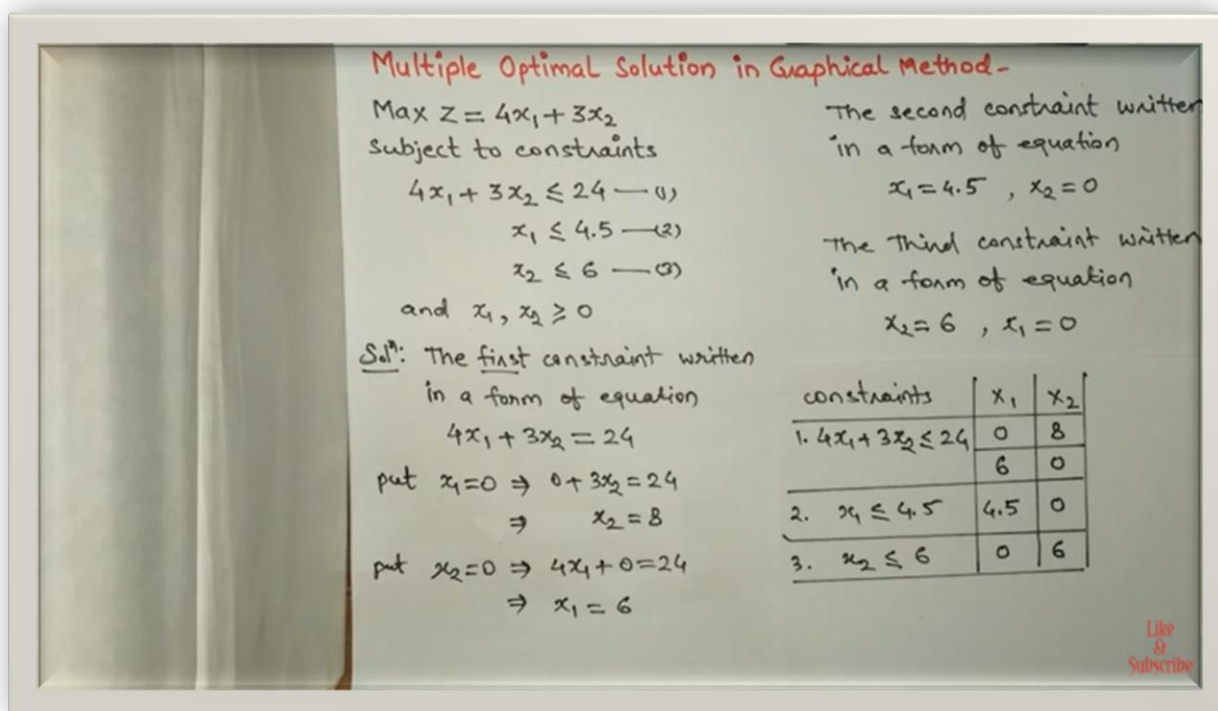 Multiple Optimal Solution in Graphical Method-
Max Z = 4x₁ + 3x₂
Subject to constraints
4x₁ + 3x₂ ≤ 24 — (1)
x₁ ≤ 4.5 — (2)
x₂ ≤ 6 — (3)
and x₁, x₂ ≥ 0
Solⁿ: The first constraint written
in a form of equation
4x₁ + 3x₂ = 24
put x₁=0 ⇒ 0 + 3x₂ = 24
⇒ x₂ = 8
put x₂=0 ⇒ 4x₁ + 0 = 24
⇒ x₁ = 6
The second constraint written
in a form of equation
x₁ = 4.5 , x₂ = 0
The Third constraint written
in a form of equation
x₂ = 6 , x₁ = 0
constraints x₁ x₂
1. 4x₁ + 3x₂ ≤ 24 0 8
6 0
2. x₁ ≤ 4.5 4.5 0
3. x₂ ≤ 6 0 6
Like
&
Subscribe